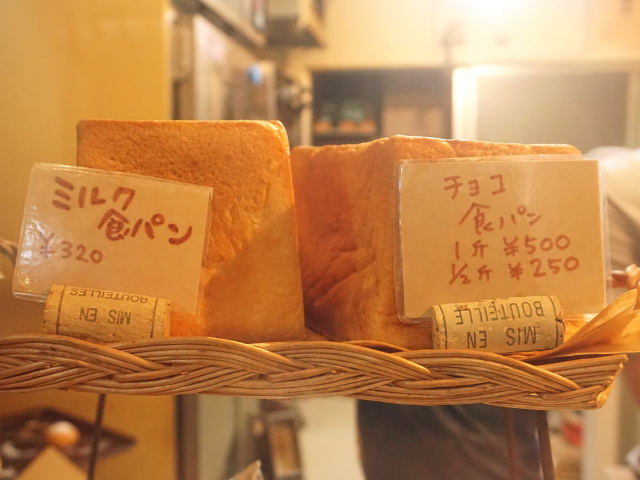 ミルク
食パン
¥320
チョコ
食パン
1斤 ¥500
1/2斤 ¥250
MIS EN
BOUTEILLES
MIS EN
BOUTEILLE